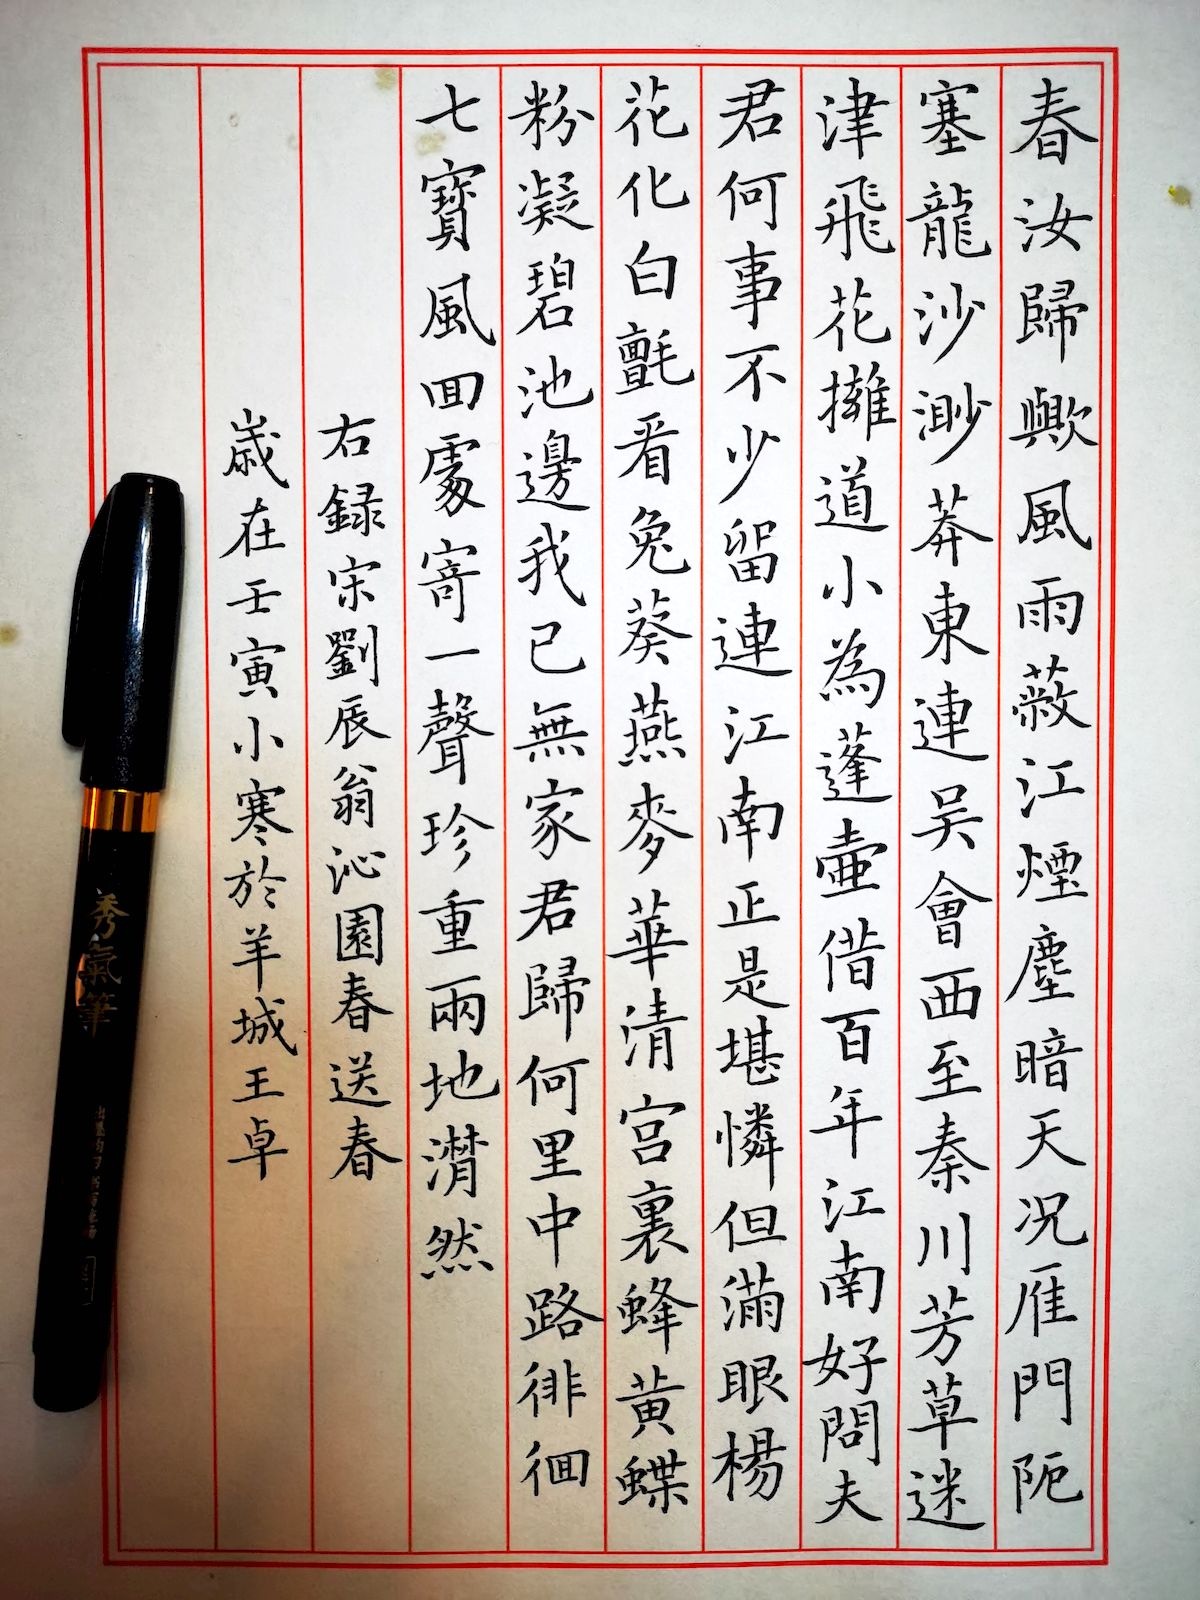 春汝歸歟風雨蔽江煙塵暗天况雁門阨
塞龍沙渺莽東連吴會西至秦川芳草迷
津飛花擁道小為蓬壷借百年江南好問夫
君何事不少留連江南正是堪憐但滿眼楊
花化白氈看兔葵燕麥華清宫裏蜂黄蝶
粉凝碧池邊我已無家君歸何里中路徘徊
七寶風回處寄一聲珍重兩地潸然
右録宋劉辰翁沁園春送春
歲在壬寅小寒於羊城王卓
秀氣筆